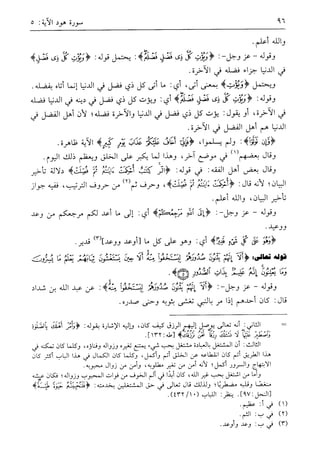 ٩٦ سورة هود الآية: ٥
والله أعلم.
وقوله - عز وجل-: ﴿وَيُؤْتِ كُلَّ ذِي فَضْلٍ فَضْلَهُ﴾: يحتمل قوله: ﴿وَيُؤْتِ كُلَّ ذِي فَضْلٍ﴾
في الدنيا جزاء فضله في الآخرة.
ويحتمل ﴿وَيُؤْتِ كُلَّ ذِي فَضْلٍ فَضْلَهُ﴾ بمعنى آتى، أي: ما آتى كل ذي فضل في الدنيا إنما أتاه بفضله.
وقوله: ﴿وَيُؤْتِ كُلَّ ذِي فَضْلٍ فَضْلَهُ﴾ أي: ويؤت كل ذي فضل في دينه في الدنيا فضله
في الآخرة، أو يقول: يؤت كل ذي فضل في الدنيا والآخرة فضله؛ لأن أهل الفضل في
الدنيا هم أهل الفضل في الآخرة.
﴿وَإِن تَوَلَّوْا﴾: ولم يسلموا، ﴿فَإِنِّي أَخَافُ عَلَيْكُمْ عَذَابَ يَوْمٍ كَبِيرٍ﴾ الآية ظاهرة.
وقال بعضهم(١) في موضع آخر، وهذا لما يكبر على الخلق ويعظم ذلك اليوم.
وقال بعض أهل الفقه: في قوله: ﴿الر كِتَابٌ أُحْكِمَتْ آيَاتُهُ ثُمَّ فُصِّلَتْ﴾ دلالة تأخير
البيان؛ لأنه قال: ﴿أُحْكِمَتْ آيَاتُهُ ثُمَّ فُصِّلَتْ﴾، وحرف ثم(٢) من حروف الترتيب، ففيه جواز
تأخير البيان، والله أعلم.
وقوله - عز وجل-: ﴿إِلَى اللَّهِ مَرْجِعُكُمْ﴾ أي: إلى ما أعد لكم مرجعكم من وعد
ووعيد.
﴿وَهُوَ عَلَى كُلِّ شَيْءٍ قَدِيرٌ﴾ أي: وهو على كل ما [أوعد ووعد](٣) قدير.
قوله تعالى: ﴿أَلَا إِنَّهُمْ يَثْنُونَ صُدُورَهُمْ لِيَسْتَخْفُوا مِنْهُ أَلَا حِينَ يَسْتَغْشُونَ ثِيَابَهُمْ يَعْلَمُ مَا يُسِرُّونَ
وَمَا يُعْلِنُونَ إِنَّهُ عَلِيمٌ بِذَاتِ الصُّدُورِ﴾
وقوله - عز وجل-: ﴿أَلَا إِنَّهُمْ يَثْنُونَ صُدُورَهُمْ لِيَسْتَخْفُوا مِنْهُ﴾: عن عبد الله بن شداد
قال: كان أحدهم إذا مر بالنبي تغشى بثوبه وحنى صدره.
= الثاني: أنه تعالى يوصل إليهم الرزق كيف كان، وإليه الإشارة بقوله: ﴿وَأْمُرْ أَهْلَكَ بِالصَّلَاةِ
وَاصْطَبِرْ عَلَيْهَا لَا نَسْأَلُكَ رِزْقًا نَّحْنُ نَرْزُقُكَ﴾ [طه:١٣٢].
الثالث: أن المشتغل بالعبادة مشتغل بحب شيء يمتنع تغيره وزواله وفناؤه، وكلما كان تمكنه في
هذا الطريق أتم كان انقطاعه عن الخلق أتم وأكمل، وكلما كان الكمال في هذا الباب أكثر كان
الابتهاج والسرور أكمل؛ لأنه أمن من تغير مطلوبه، وأمن من زوال محبوبه.
وأما من اشتغل بحب غير الله، كان أبدًا في ألم الخوف من فوات المحبوب وزواله؛ فكان عيشه
منغصًا وقلبه مضطربًا؛ ولذلك قال تعالى في حق المشتغلين بخدمته: ﴿فَلَنُحْيِيَنَّهُ حَيَاةً طَيِّبَةً﴾
[النحل: ٩٧]. ينظر: اللباب (١٠/ ٤٣٢)
(١) في أ: عظيم.
(٢) في ب: الثم.
(٣) في ب: وعد وأوعد.